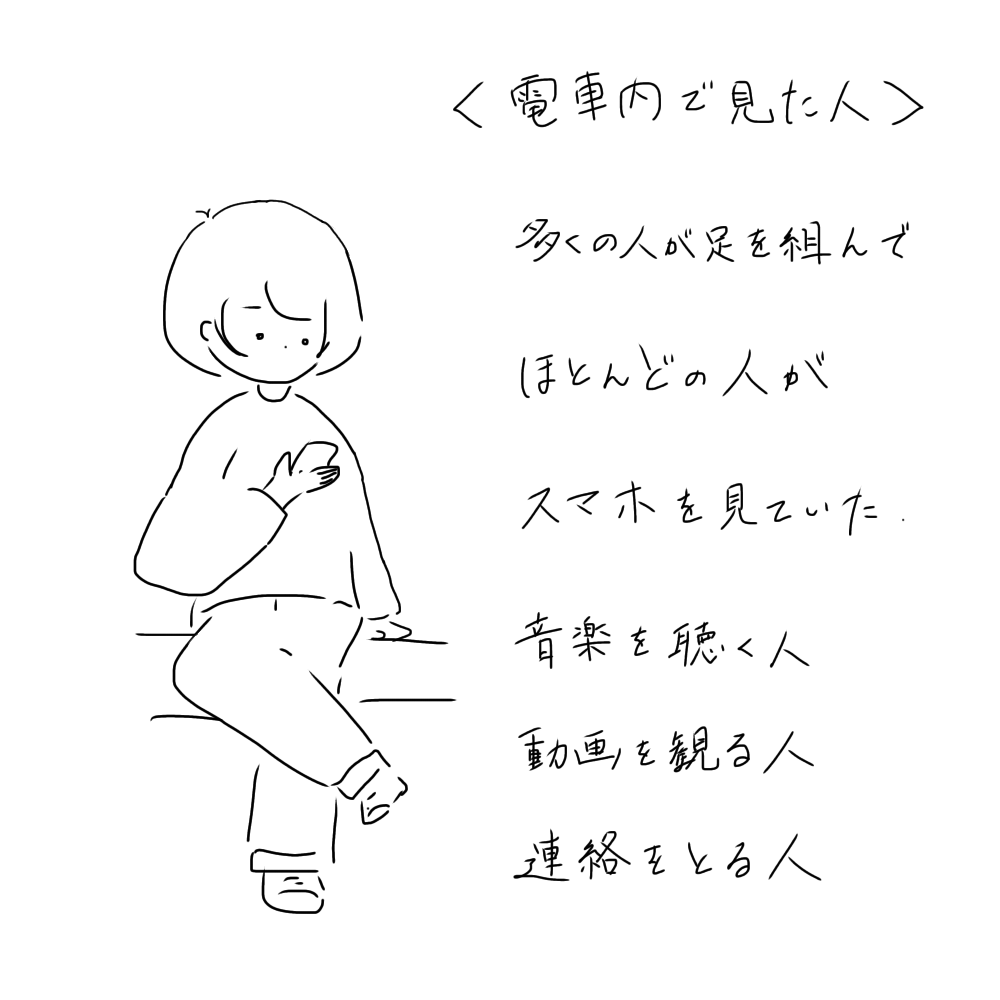 <電車内で見た人>
多くの人が足を組んで
ほとんどの人が
スマホを見ていた.
音楽を聴く人
動画を観る人
連絡をとる人